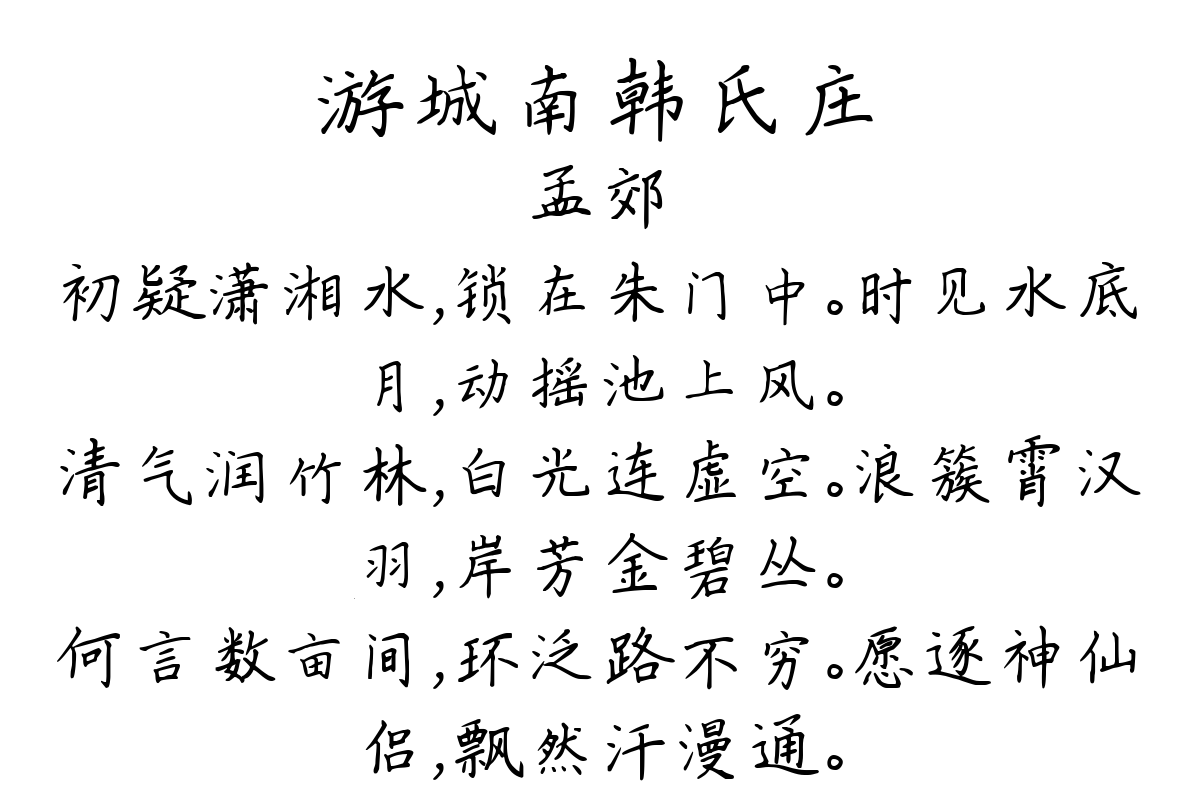 游城南韩氏庄
孟郊
初疑潇湘水,锁在朱门中。时见水底
月,动摇池上风。
清气润竹林,白光连虚空。浪簇霄汉
羽,岸芳金碧丛。
何言数亩间,环泛路不穷。愿逐神仙
侣,飘然汗漫通。